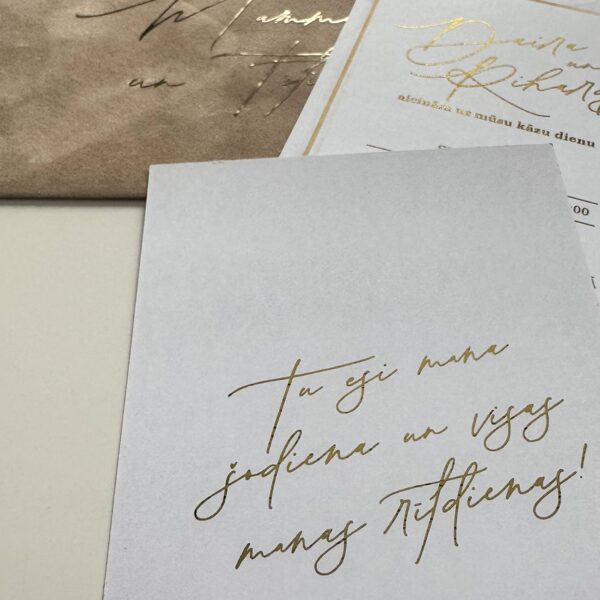 un
Daira
un
aicinām uz mūsu kāzu dienu
00
Tu esi mana
šodiena un visas
manas rītdienas!